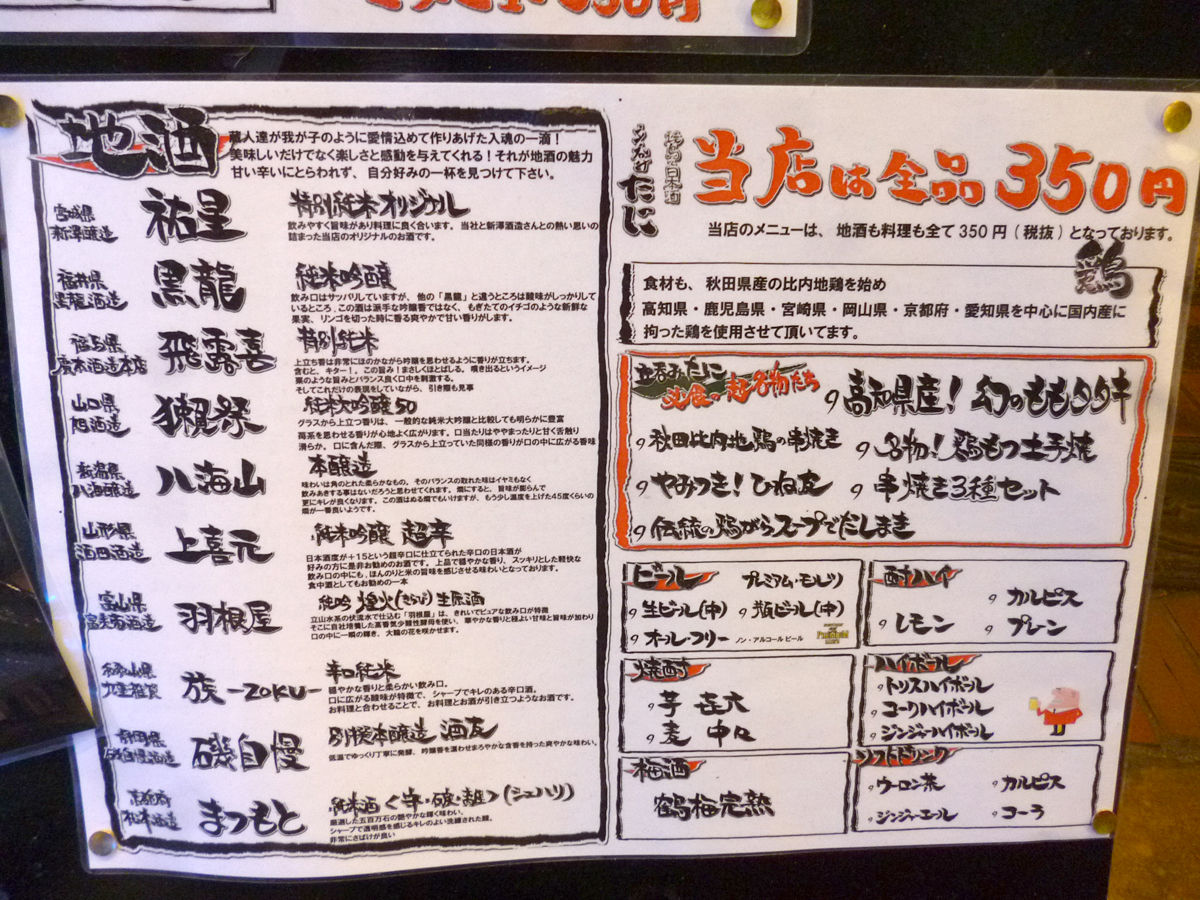 全品350円
地酒
蔵人達が我が子のように愛情込めて作りあげた入魂の一滴！
美味しいだけでなく楽しさと感動を与えてくれる！それが地酒の魅力
甘い辛いにとらわれず、自分好みの一杯を見つけて下さい。
宮城県
新澤醸造
祐星
特別純米オリジナル
飲みやすく旨味があり料理に良く合います。当社と新澤酒造さんとの熱い思いの
詰まった当店のオリジナルのお酒です。
福井県
黒龍酒造
黒龍
純米吟醸
飲み口はサッパリしていますが、他の「黒龍」と違うところは酸味がしっかりして
いるところ、この酒は派手な吟醸香ではなく、もぎたてのイチゴのような新鮮な
果実、リンゴを切った時に香る爽やかで甘い香りがします。
福島県
廣木酒造本店
飛露喜
特別純米
上立ち香は非常にほのかながら吟醸を思わせるように香りが立ちます。
含むと、キター！。この旨み！まさしくほとばしる。噴き出るというイメージ
栗のような旨みとバランス良く口中を刺激する。
そしてこれだけの表現をしていながら、引き際も見事
山口県
旭酒造
獺祭
純米大吟醸50
グラスから上立つ香は、一般的な純米大吟醸と比較しても明らかに豊富
苺茶を思わせる香りが心地よく広がります。口当たりはややまったりと甘く舌触り
滑らか。口に含んだ際、グラスから上立っていた同様の香りが口の中に広がる香味
新潟県
八海醸造
八海山
本醸造
味わいは角のとれた柔らかなもの。そのバランスの取れた味はイヤミもなく
飲みあきする事はないだろうと思わせてくれます。燗にすると、旨味が膨らんで
更にキレが良くなります。この酒はぬる燗でもいけますが、もう少し温度を上げた45度くらいの
燗が一番良いようです。
山形県
酒田酒造
上喜元
純米吟醸 超辛
日本酒度が+15という超辛口に仕立てられた辛口の日本酒が
好みの方に是非お勧めのお酒です。上品で穏やかな香り、スッキリとした軽快な
飲み口の中にも、ほんのりと米の旨味を感じさせる味わいとなっております。
食中酒としてもお勧めの一本
富山県
羽根屋
純吟 煌火(きらび)生原酒
立山水系の伏流水で仕込む「羽根屋」は、きれいでピュアな飲み口が特徴
そこに自社培養した高香気少酸性酵母を使い、華やかな香りと程よい甘味と旨味が加わり
口の中に一瞬の輝き、大輪の花を咲かせます。
和歌山県
九重雑賀
族-ZOKU-
辛口純米
穏やかな香りと柔らかい飲み口。
口に広がる酸味が特徴で、シャープでキレのある辛口酒。
お料理と合わせることで、お料理とお酒が引き立つようなお酒です。
静岡県
磯自慢酒造
磯自慢
別撰本醸造 酒友
低温でゆっくり丁寧に発酵、吟醸香を漂わせまろやかな含香を持った爽やかな味わい。
京都府
松本酒造
まつもと
純米酒＜守・破・離＞(シュハリ)
厳選した五百万石の艶やかな輝く味わい、
シャープで透明感を感じるキレのよい洗練された酸。
非常にさばけが良い
たに
当店は全品350円
当店のメニューは、地酒も料理も全て350円(税抜)となっております。
鶏
食材も、秋田県産の比内地鶏を始め
高知県・鹿児島県・宮崎県・岡山県・京都府・愛知県を中心に国内産に
拘った鶏を使用させて頂いてます。
立呑みたに
必食の超名物たち
高知県産！幻のももタタキ
秋田比内地鶏の串焼き
名物！鶏もつ土手焼
やみつき！ひね皮
串焼き3種セット
伝統の鶏がらスープでだしまき
ビール
プレミアム・モルツ
生ビール(中)
瓶ビール(中)
オール・フリー
ノン・アルコール ビール
酎ハイ
カルピス
レモン
プレーン
焼酎
芋 㐂六
麦 中々
ハイボール
トリスハイボール
コークハイボール
ジンジャーハイボール
梅酒
鶴梅完熟
ソフトドリンク
ウーロン茶
カルピス
ジンジャーエール
コーラ